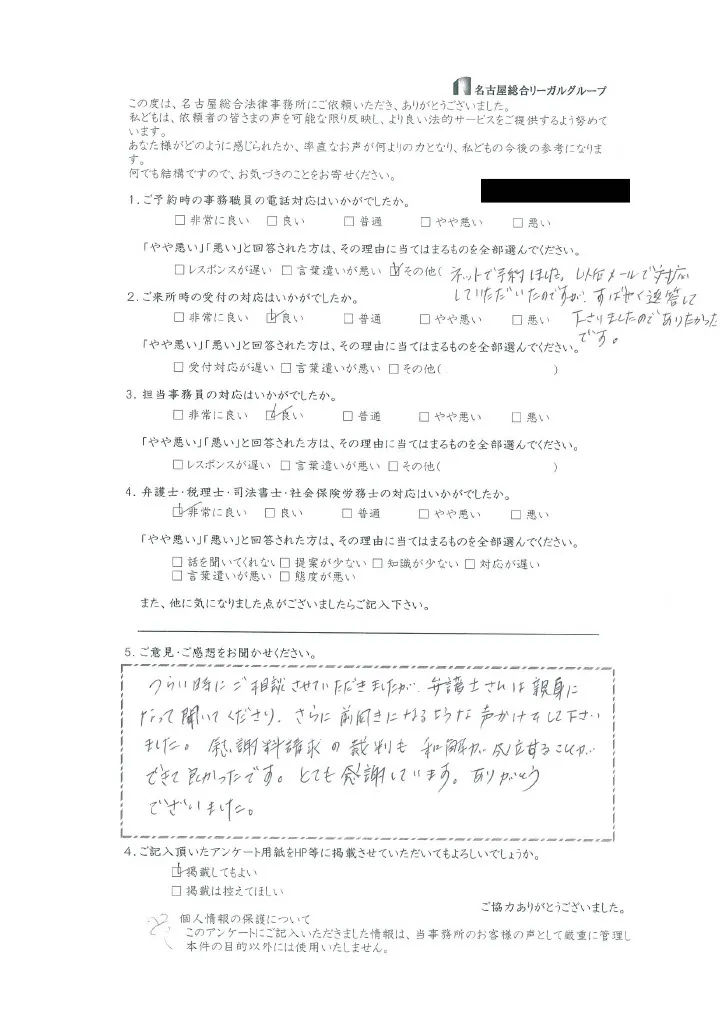 名古屋総合リーガルグループ
この度は、名古屋総合法律事務所にご依頼いただき、ありがとうございました。
私どもは、依頼者の皆さまの声を可能な限り反映し、より良い法的サービスをご提供するよう努めて
います。
あなた様がどのように感じられたか、率直なお声が何よりの力となり、私どもの今後の参考になりま
す。
何でも結構ですので、お気づきのことをお寄せください。
1. ご予約時の事務職員の電話対応はいかがでしたか。
□ 非常に良い □ 良い □ 普通 □ やや悪い □ 悪い
「やや悪い」「悪い」と回答された方は、その理由に当てはまるものを全部選んでください。
□ レスポンスが遅い □ 言葉遣いが悪い ☑ その他( ネットで予約しました。以後メールで対応
していただいたのですが、すばやく返答して
下さりましたのでありがたかった
です。
2. ご来所時の受付の対応はいかがでしたか。
□ 非常に良い ☑ 良い □ 普通 □ やや悪い □ 悪い
「やや悪い」「悪い」と回答された方は、その理由に当てはまるものを全部選んでください。
□ 受付対応が遅い □ 言葉遣いが悪い □ その他( )
3. 担当事務員の対応はいかがでしたか。
□ 非常に良い ☑ 良い □ 普通 □ やや悪い □ 悪い
「やや悪い」「悪い」と回答された方は、その理由に当てはまるものを全部選んでください。
□ レスポンスが遅い □ 言葉遣いが悪い □ その他( )
4. 弁護士・税理士・司法書士・社会保険労務士の対応はいかがでしたか。
☑ 非常に良い □ 良い □ 普通 □ やや悪い □ 悪い
「やや悪い」「悪い」と回答された方は、その理由に当てはまるものを全部選んでください。
□ 話を聞いてくれない □ 提案が少ない □ 知識が少ない □ 対応が遅い
□ 言葉遣いが悪い □ 態度が悪い
また、他に気になりました点がございましたらご記入下さい。
5. ご意見・ご感想をお聞かせください。
つらい時にご相談させていただきましたが、弁護士さんは親身に
なって聞いてくださり、さらに前向きになるような声かけをして下さい
ました。慰謝料請求の裁判も和解が成立することが
できて良かったです。とても感謝しています。ありがとう
ございました。
4. ご記入頂いたアンケート用紙をHP等に掲載させていただいてもよろしいでしょうか。
☑ 掲載してもよい
□ 掲載は控えてほしい
ご協力ありがとうございました。
個人情報の保護について
このアンケートにご記入いただきました情報は、当事務所のお客様の声として厳重に管理し
本件の目的以外には使用いたしません。